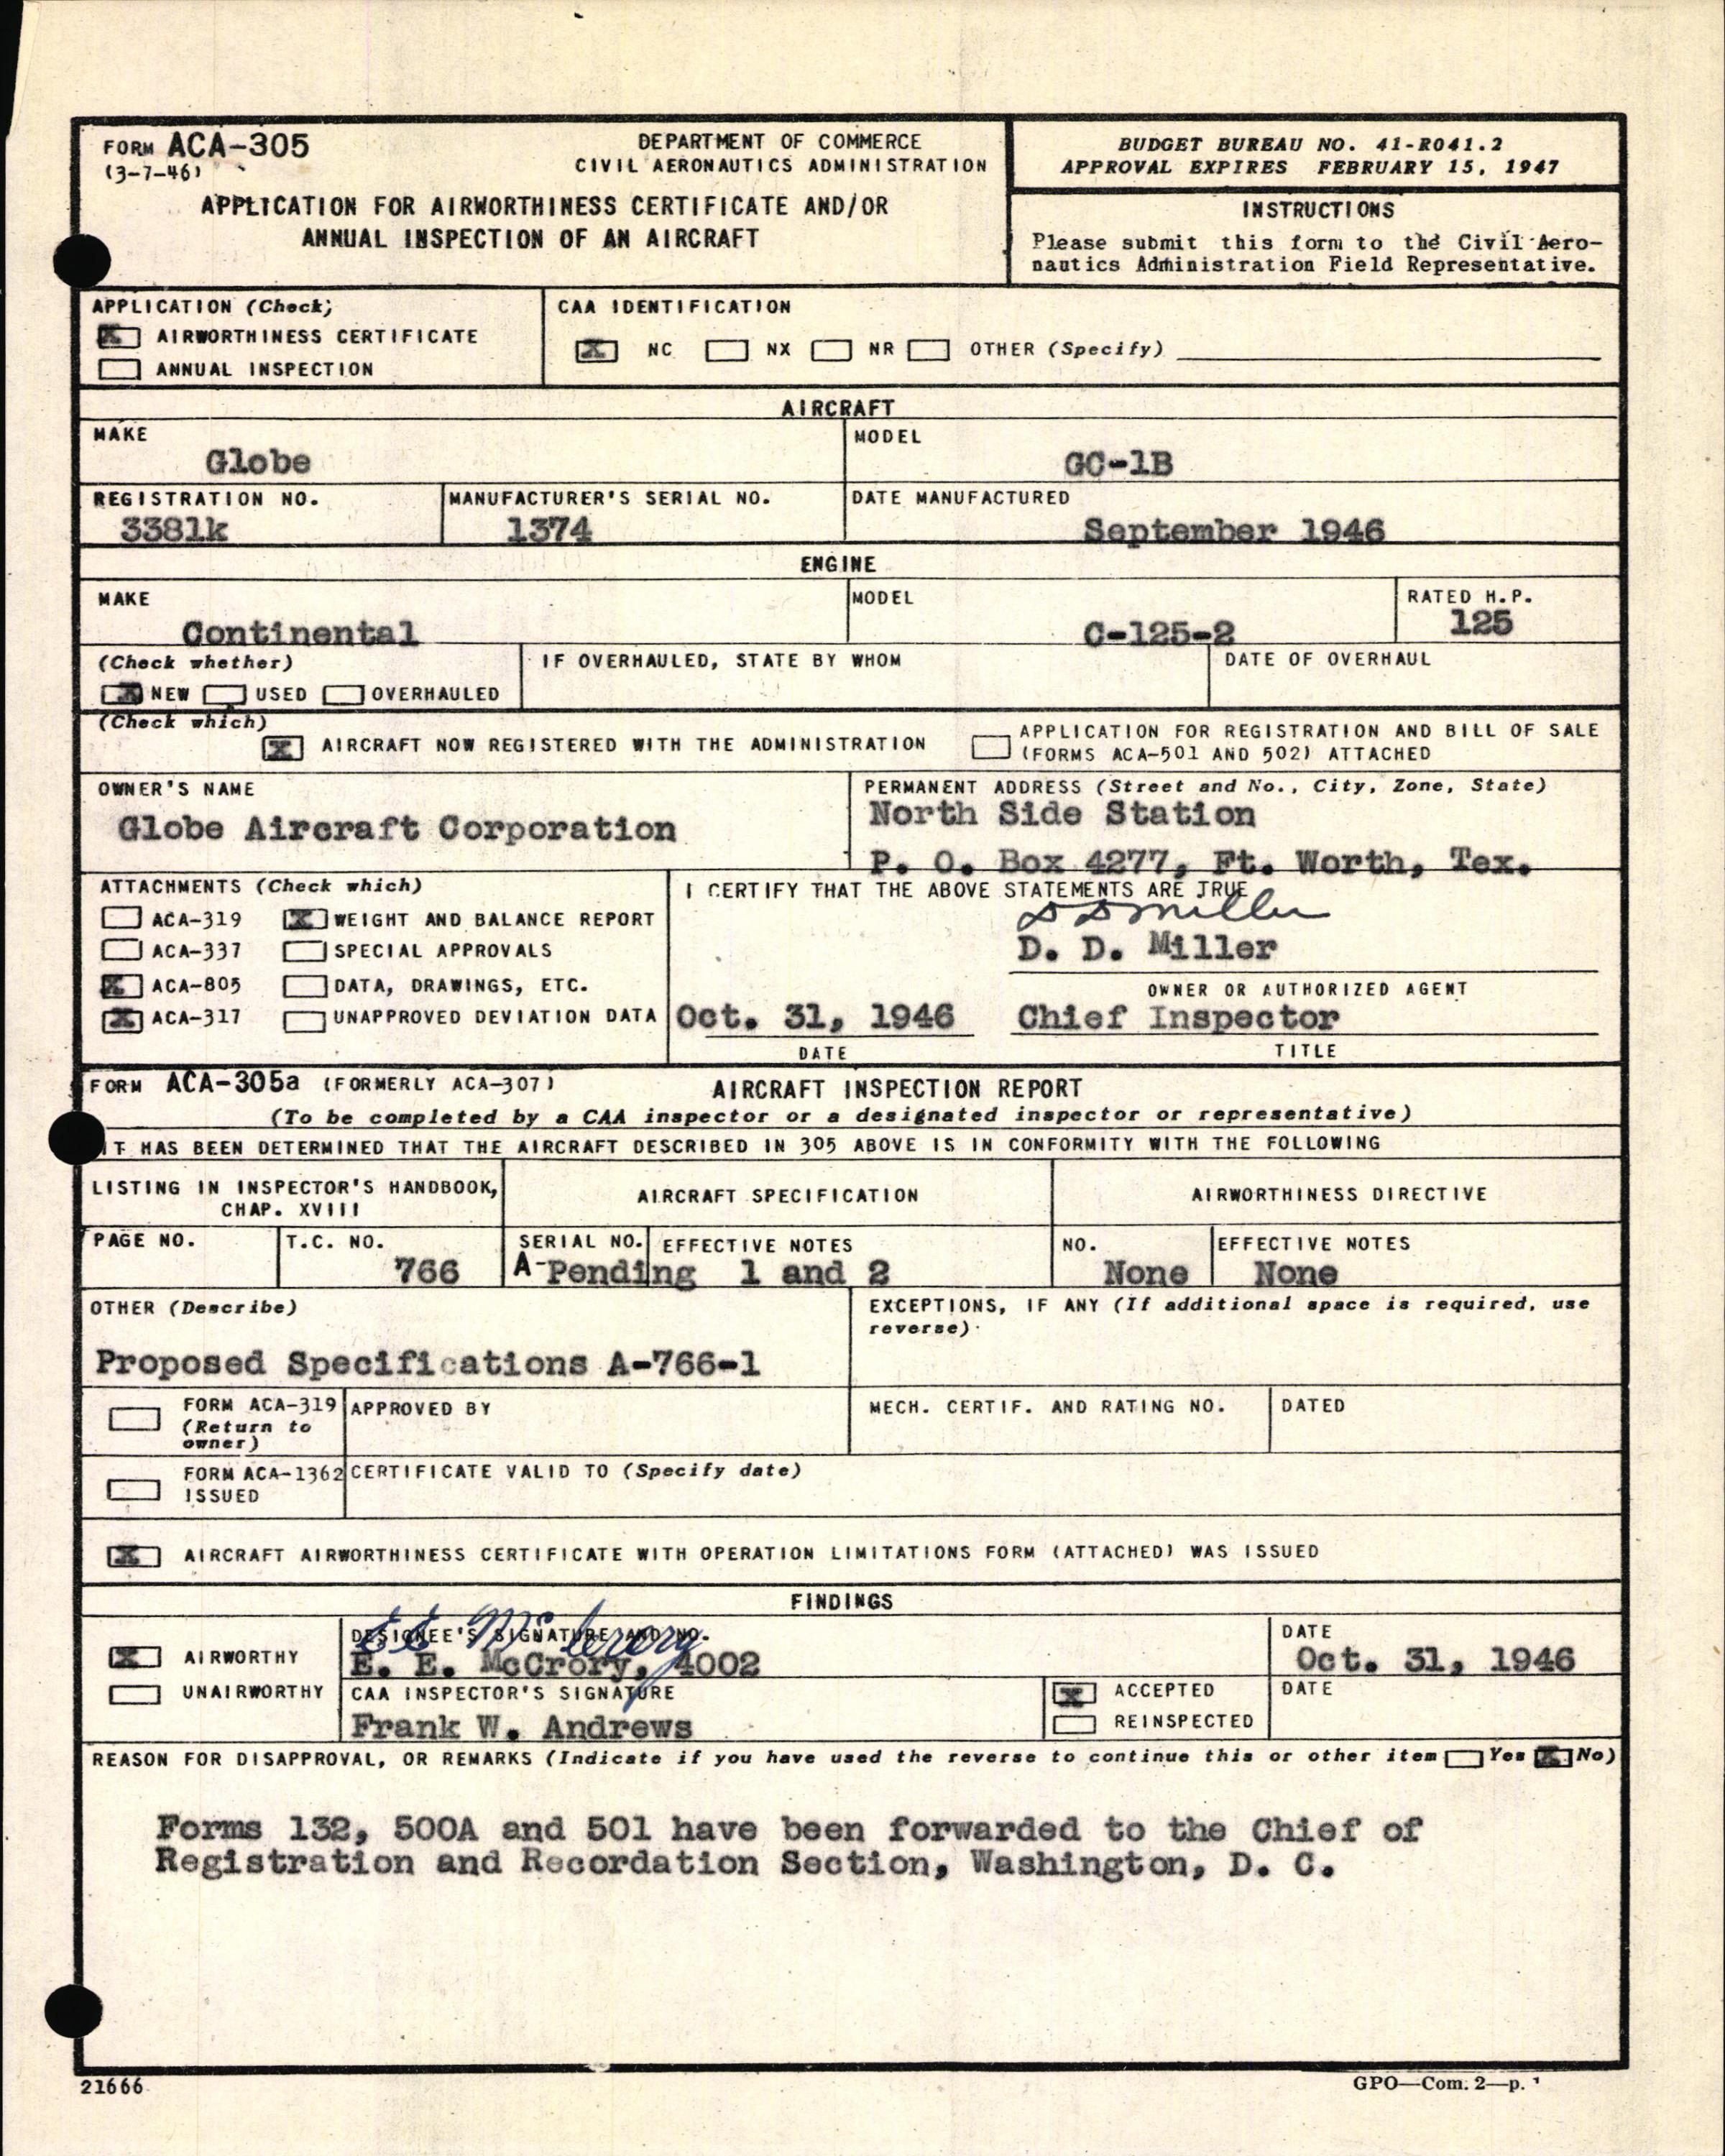 FORM ACA-305
(3-7-46)
DEPARTMENT OF COMMERCE
CIVIL AERONAUTICS ADMINISTRATION
APPLICATION FOR AIRWORTHINESS CERTIFICATE AND/OR
ANNUAL INSPECTION OF AN AIRCRAFT
BUDGET BUREAU NO. 41-R041.2
APPROVAL EXPIRES FEBRUARY 15, 1947
INSTRUCTIONS
Please submit this form to the Civil Aero-
nautics Administration Field Representative.
APPLICATION (Check)
X AIRWORTHINESS CERTIFICATE
ANNUAL INSPECTION
CAA IDENTIFICATION
X NC NX NR OTHER (Specify)
AIRCRAFT
MAKE
Globe
MODEL
GC-1B
REGISTRATION NO.
3381k
MANUFACTURER'S SERIAL NO.
1374
DATE MANUFACTURED
September 1946
ENGINE
MAKE
Continental
MODEL
C-125-2
RATED H.P.
125
(Check whether)
X NEW USED OVERHAULED
IF OVERHAULED, STATE BY WHOM
DATE OF OVERHAUL
(Check which)
X AIRCRAFT NOW REGISTERED WITH THE ADMINISTRATION
APPLICATION FOR REGISTRATION AND BILL OF SALE
(FORMS ACA-501 AND 502) ATTACHED
OWNER'S NAME
Globe Aircraft Corporation
PERMANENT ADDRESS (Street and No., City, Zone, State)
North Side Station
P. O. Box 4277, Ft. Worth, Tex.
ATTACHMENTS (Check which)
ACA-319 X WEIGHT AND BALANCE REPORT
ACA-337 SPECIAL APPROVALS
X ACA-805 DATA, DRAWINGS, ETC.
X ACA-317 UNAPPROVED DEVIATION DATA
I CERTIFY THAT THE ABOVE STATEMENTS ARE TRUE
D D Miller
D. D. Miller
OWNER OR AUTHORIZED AGENT
Oct. 31, 1946 Chief Inspector
DATE TITLE
FORM ACA-305a (FORMERLY ACA-307) AIRCRAFT INSPECTION REPORT
(To be completed by a CAA inspector or a designated inspector or representative)
IT HAS BEEN DETERMINED THAT THE AIRCRAFT DESCRIBED IN 305 ABOVE IS IN CONFORMITY WITH THE FOLLOWING
LISTING IN INSPECTOR'S HANDBOOK,
CHAP. XVIII
AIRCRAFT SPECIFICATION
AIRWORTHINESS DIRECTIVE
PAGE NO.
T.C. NO.
766
SERIAL NO. EFFECTIVE NOTES
A-Pending 1 and 2
NO.
None
EFFECTIVE NOTES
None
OTHER (Describe)
Proposed Specifications A-766-1
EXCEPTIONS, IF ANY (If additional space is required, use
reverse)
FORM ACA-319
(Return to
owner)
APPROVED BY
MECH. CERTIF. AND RATING NO.
DATED
FORM ACA-1362
ISSUED
CERTIFICATE VALID TO (Specify date)
X AIRCRAFT AIRWORTHINESS CERTIFICATE WITH OPERATION LIMITATIONS FORM (ATTACHED) WAS ISSUED
FINDINGS
X AIRWORTHY
UNAIRWORTHY
DESIGNEE'S SIGNATURE AND NO.
E E McCrory
E. E. McCrory, 4002
DATE
Oct. 31, 1946
CAA INSPECTOR'S SIGNATURE
Frank W. Andrews
X ACCEPTED
REINSPECTED
DATE
REASON FOR DISAPPROVAL, OR REMARKS (Indicate if you have used the reverse to continue this or other item Yes X No)
Forms 132, 500A and 501 have been forwarded to the Chief of
Registration and Recordation Section, Washington, D. C.
21666
GPO—Com. 2—p.